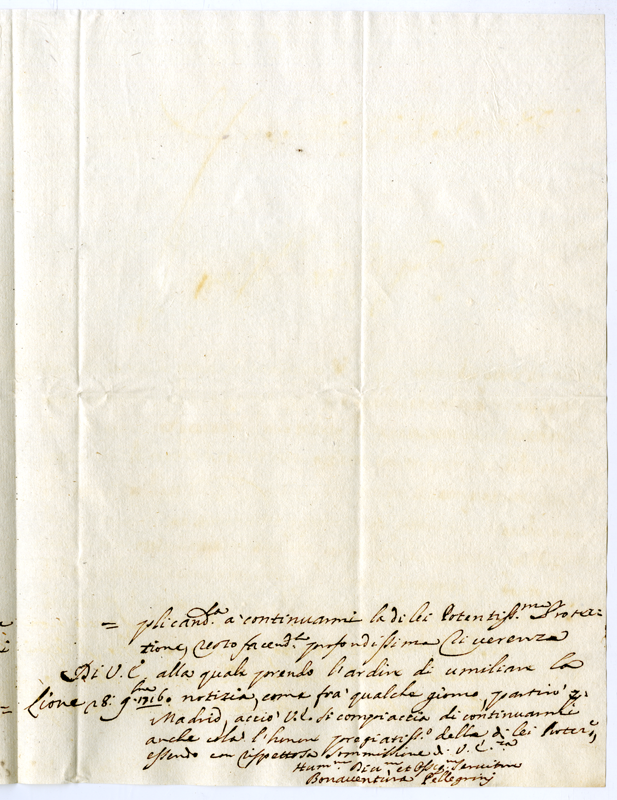 = plicand.la a continuarmi la di lei Potentiss.ma Prote=
tione, resto facend.le profondissima riverenza
Di V. E. alla quale prendo l'ardire di umiliare la
Lione 28. 9.bre 1716. notizia, come frà qualche giorno partirò p.
Madrid, acciò V. E. si compiaccia di continuarmi
anche colà l'honore pregiatiss.o della di lei Protez.e,
essendo con rispettosa sommissione di V. E.za
Hum.mo Div.mo et Oss.mo Servitore
Bonaventura Pellegrini